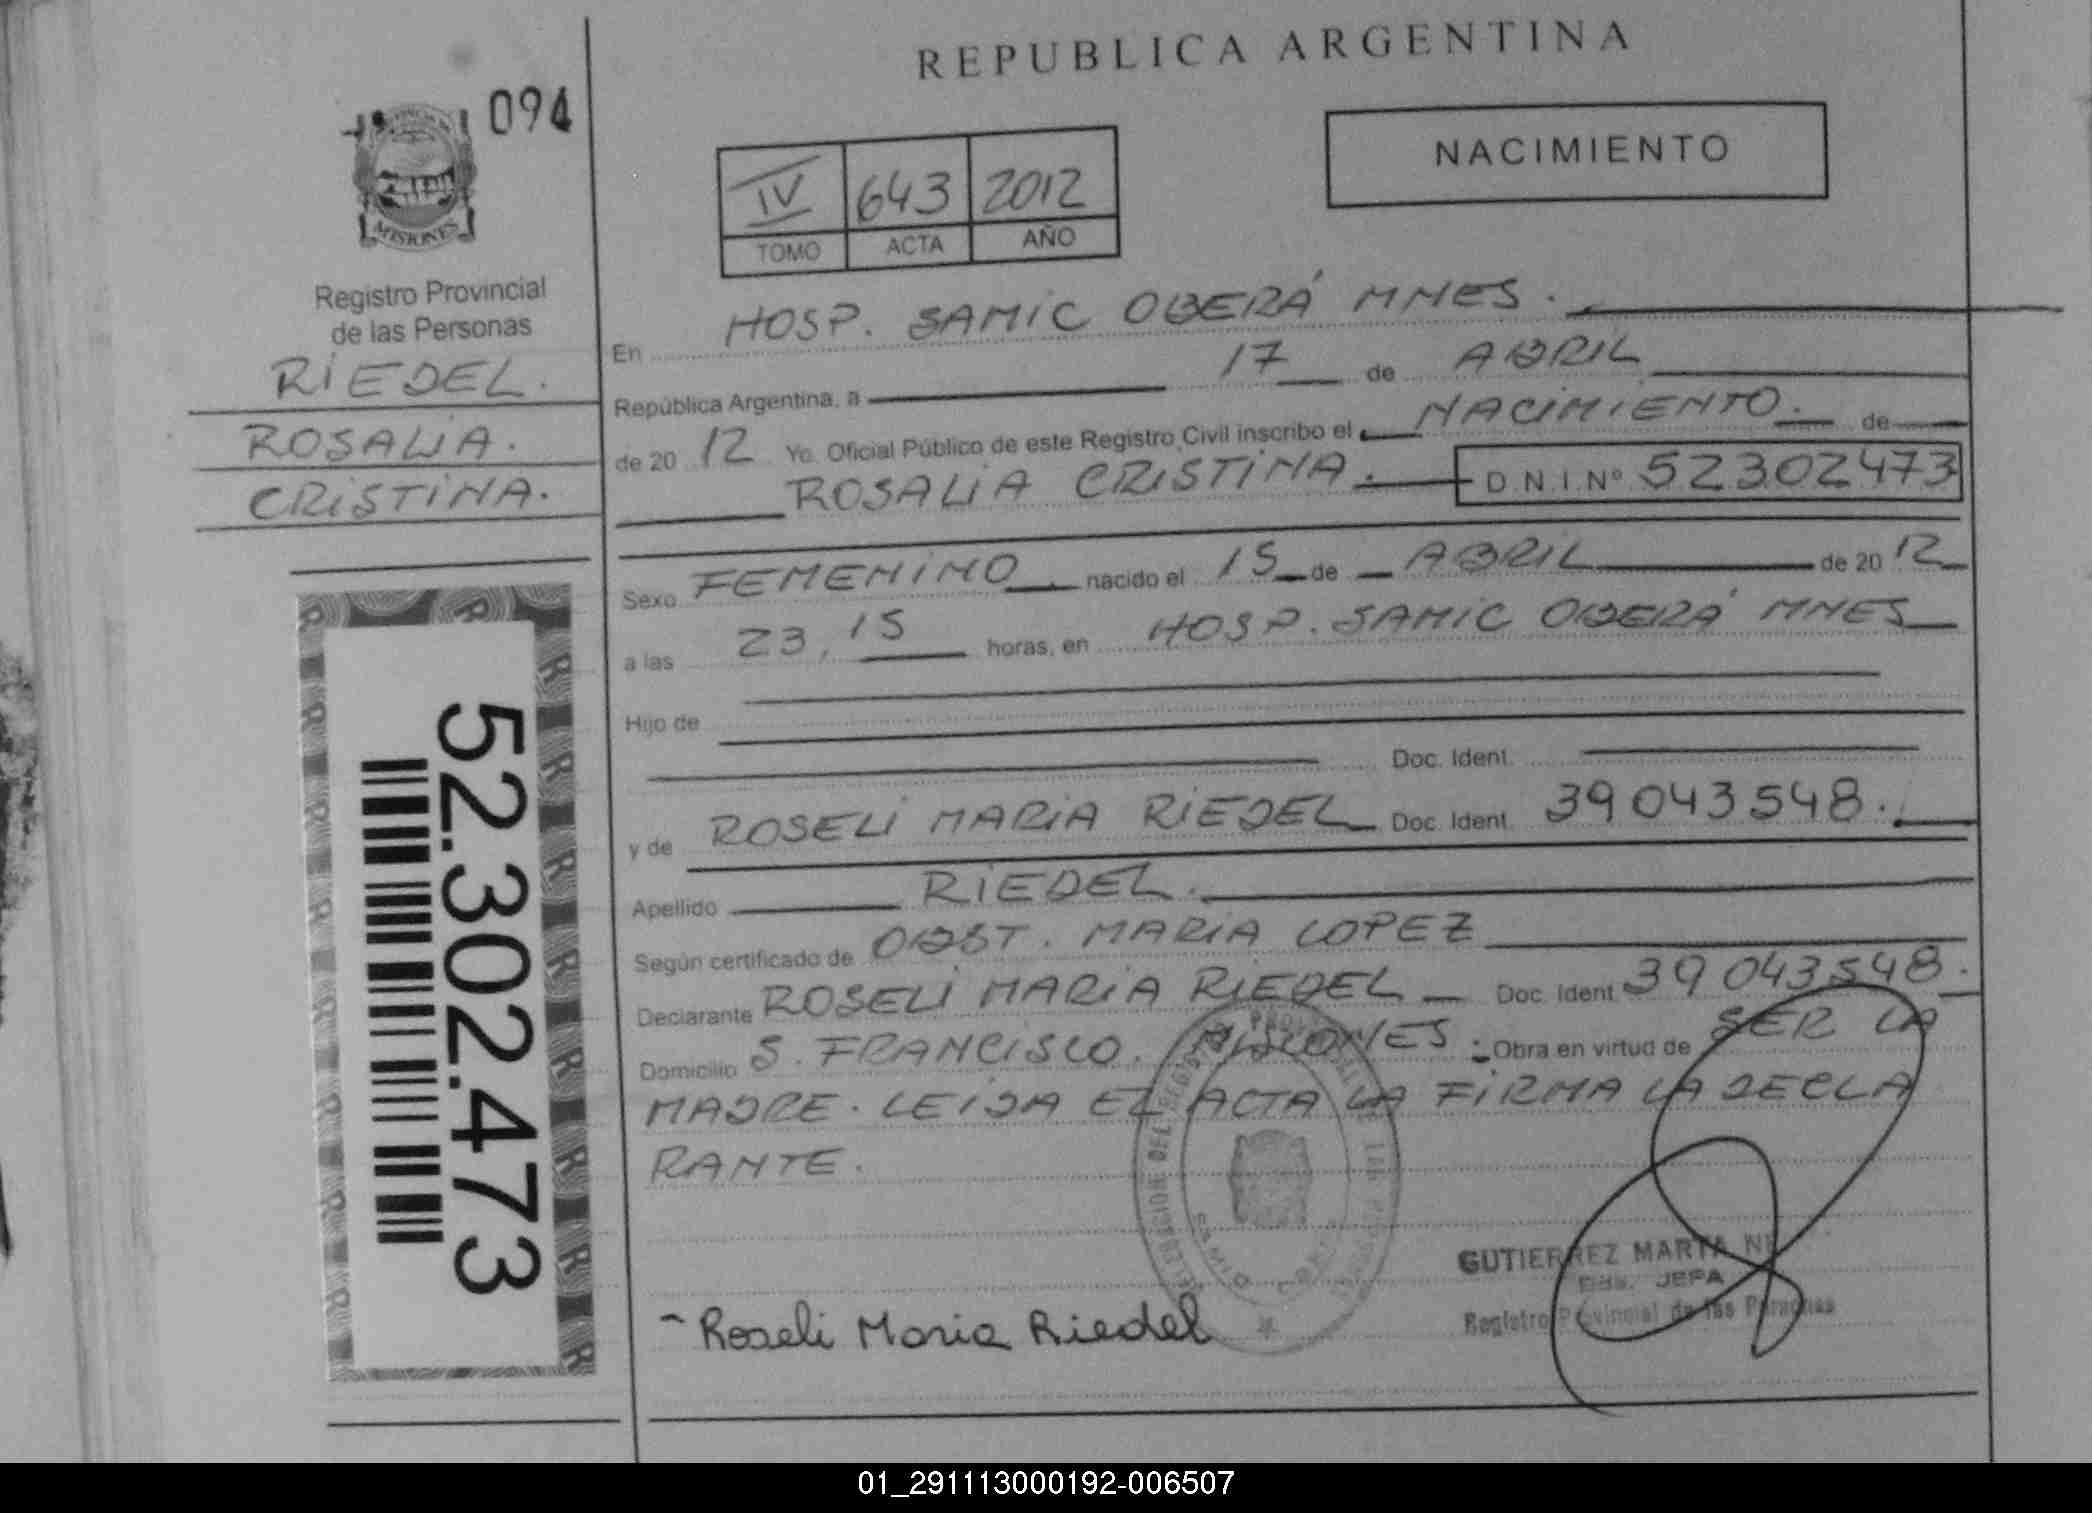 REPUBLICA ARGENTINA
094
NACIMIENTO
IV 643 2012
TOMO ACTA AÑO
MISIONES
Registro Provincial
de las Personas
RIEDEL.
ROSALIA.
CRISTINA.
52.302.473
En HOSP. SAMIC OBERÁ MNES.
República Argentina, a 17 de ABRIL
de 20 12 Yo. Oficial Público de este Registro Civil inscribo el NACIMIENTO. de
ROSALIA CRISTINA. D.N.I.Nº 52302473
Sexo FEMENINO. nacido el 15 de ABRIL de 20 12
a las 23,15 horas, en HOSP. SAMIC OBERÁ MNES
Hijo de
Doc. Ident.
y de ROSELI MARIA RIEDEL Doc. Ident. 39043548.
Apellido RIEDEL.
Según certificado de OBST. MARIA LOPEZ
Declarante ROSELI MARIA RIEDEL Doc. Ident 39043548.
Domicilio S. FRANCISCO. MISIONES. Obra en virtud de SER LA
MADRE. LEIDA EL ACTA LA FIRMA LA DECLA
RANTE.
Roseli Maria Riedel
GUTIERREZ MARTA
JEFA
Registro Provincial de las Personas
01_291113000192-006507